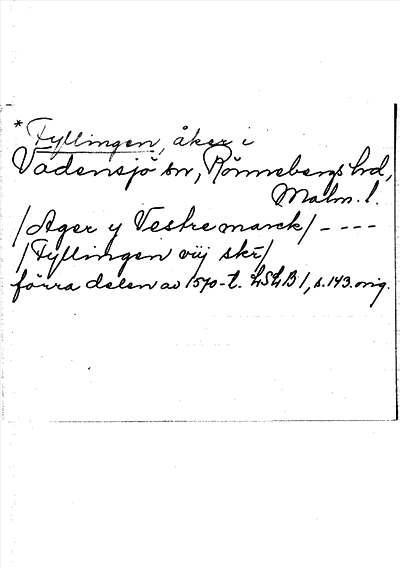 * Fyllingen, åker i
Vadensjö sn, Rönnebergs hd,
Malm. l.
/Ager y Vestre marck/ - - - -
/Fyllingen viij skr/
förra delen av 1570-t. LSLB 1, s. 143. orig.